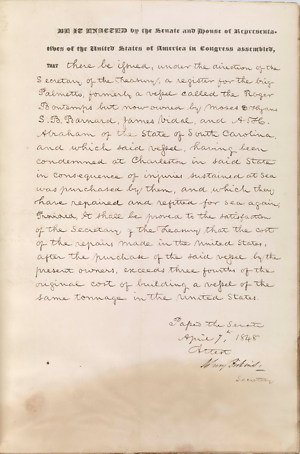 BE IT ENACTED by the Senate and House of Representa-
tives of the United States of America in Congress assembled,
THAT there be issued, under the direction of the
Secretary of the Treasury, a register for the brig
Palmetto, formerly a vessel called the Roger
Bontemps but now owned by Moses
S. B. Barnard, James Vidal, and
Abraham of the State of South Carolina
and which said vessel, having been
condemned at Charleston in said State
in consequence of injuries sustained at Sea
was purchased by them, and which they
have repaired and refitted for sea again,
Provided, It shall be proved to the satisfaction
of the Secretary of the Treasury that the cost
of the repairs made in the United States,
after the purchase of the said vessel by the
present owners, exceeds three fourths of the
original cost of building a vessel of the
same tonnage in the United States.
Passed the Senate
April 7, 1848
Attest
Secretary